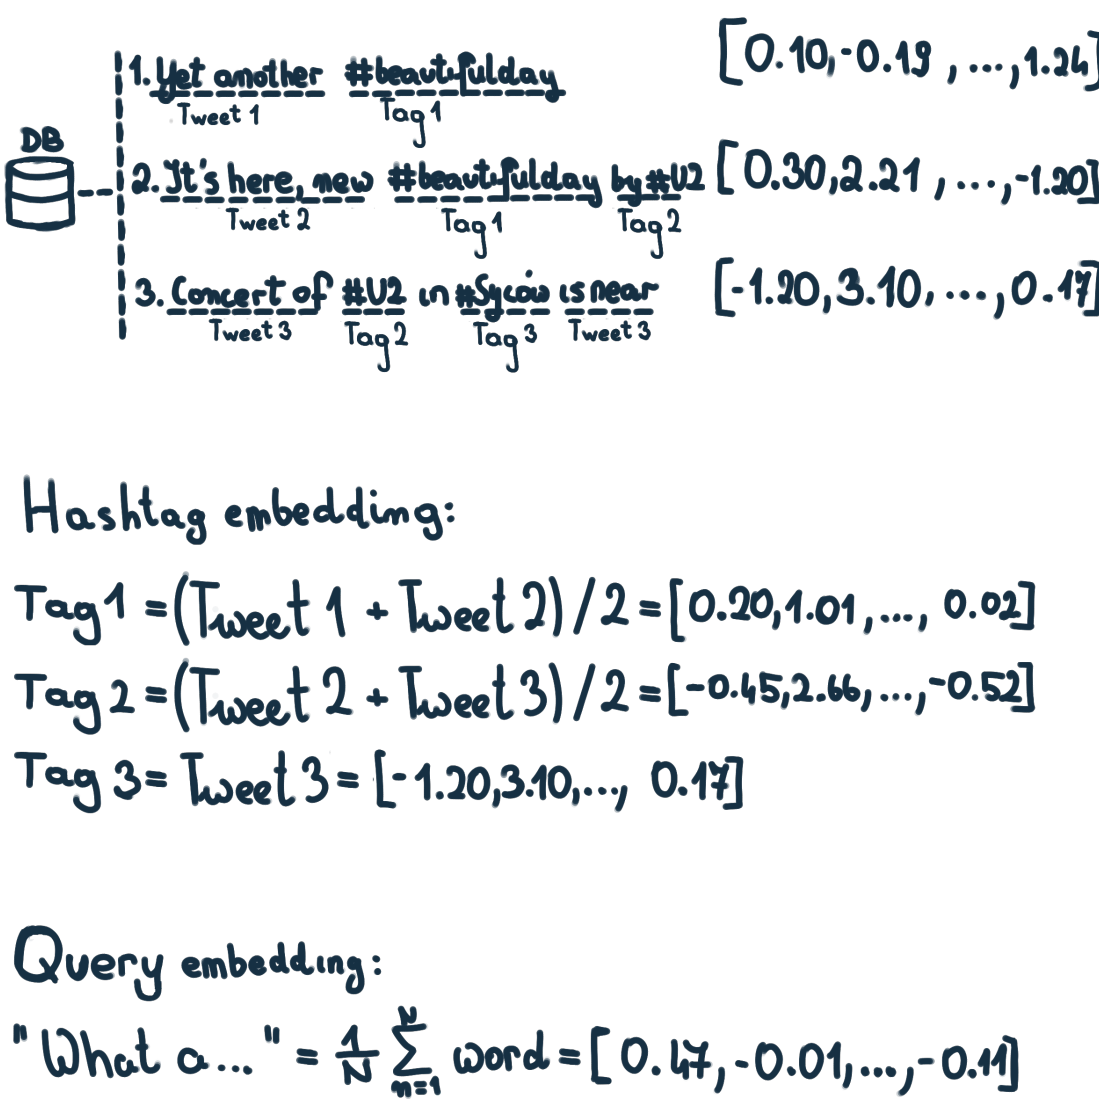 1. Yet another #beautifulday [0.10,-0.19, ...,1.24]
Tweet 1 Tag 1
DB
2. It's here, new #beautifulday by #U2 [0.30,2.21, ...,-1.20]
Tweet 2 Tag 1 Tag 2
3. Concert of #U2 in #Syców is near [-1.20,3.10, ..., 0.17]
Tweet 3 Tag 2 Tag 3 Tweet 3
Hashtag embedding:
Tag 1 = (Tweet 1 + Tweet 2) / 2 = [0.20,1.01, ..., 0.02]
Tag 2 = (Tweet 2 + Tweet 3) / 2 = [-0.45,2.66, ...,-0.52]
Tag 3 = Tweet 3 = [-1.20,3.10,..., 0.17]
Query embedding:
"What a..." = 1/N N∑n=1 word = [0.47,-0.01,...,-0.11]